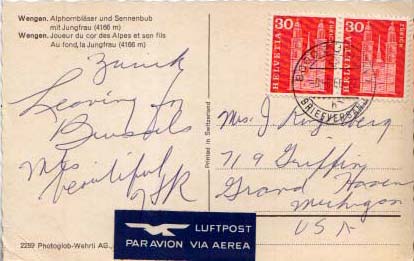 Wengen. Alphornbläser und Sennenbub
mit Jungfrau (4166 m)
Wengen. Joueur du cor des Alpes et son fils
Au fond, la Jungfrau (4166 m)
Zurich
Leaving for
Brussels
beautiful
2259 Photoglob-Wehrli AG.,
Printed in Switzerland
30
30
HELVETIA
HELVETIA
BRIEFVERSAND
Mrs. J.
719 Griffin
Grand Haven
Michigan
USA
LUFTPOST
PAR AVION VIA AEREA